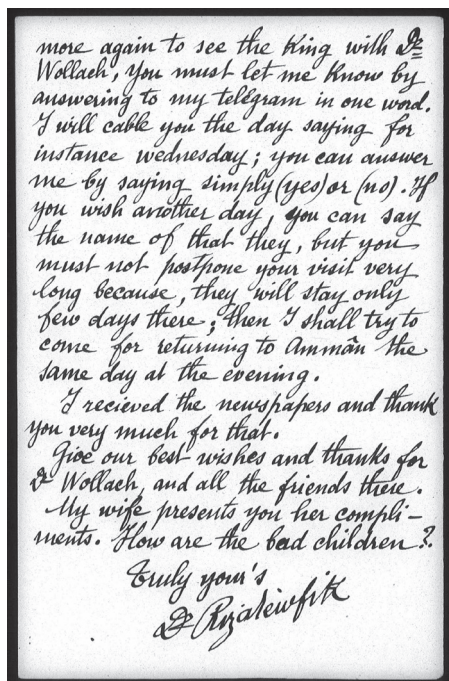 more again to see the King with Dr
Wollach, you must let me know by
answering to my telegram in one word.
I will cable you the day saying for
instance wednesday; you can answer
me by saying simply (yes) or (no). If
you wish another day, you can say
the name of that they, but you
must not postpone your visit very
long because, they will stay only
few days there; then I shall try to
come for returning to Ammân the
same day at the evening.
I recieved the newspapers and thank
you very much for that.
Give our best wishes and thanks for
Dr Wollach, and all the friends there.
My wife presents you her compli-
ments. How are the bad children?
Truly your's
Dr Riza Tewfik